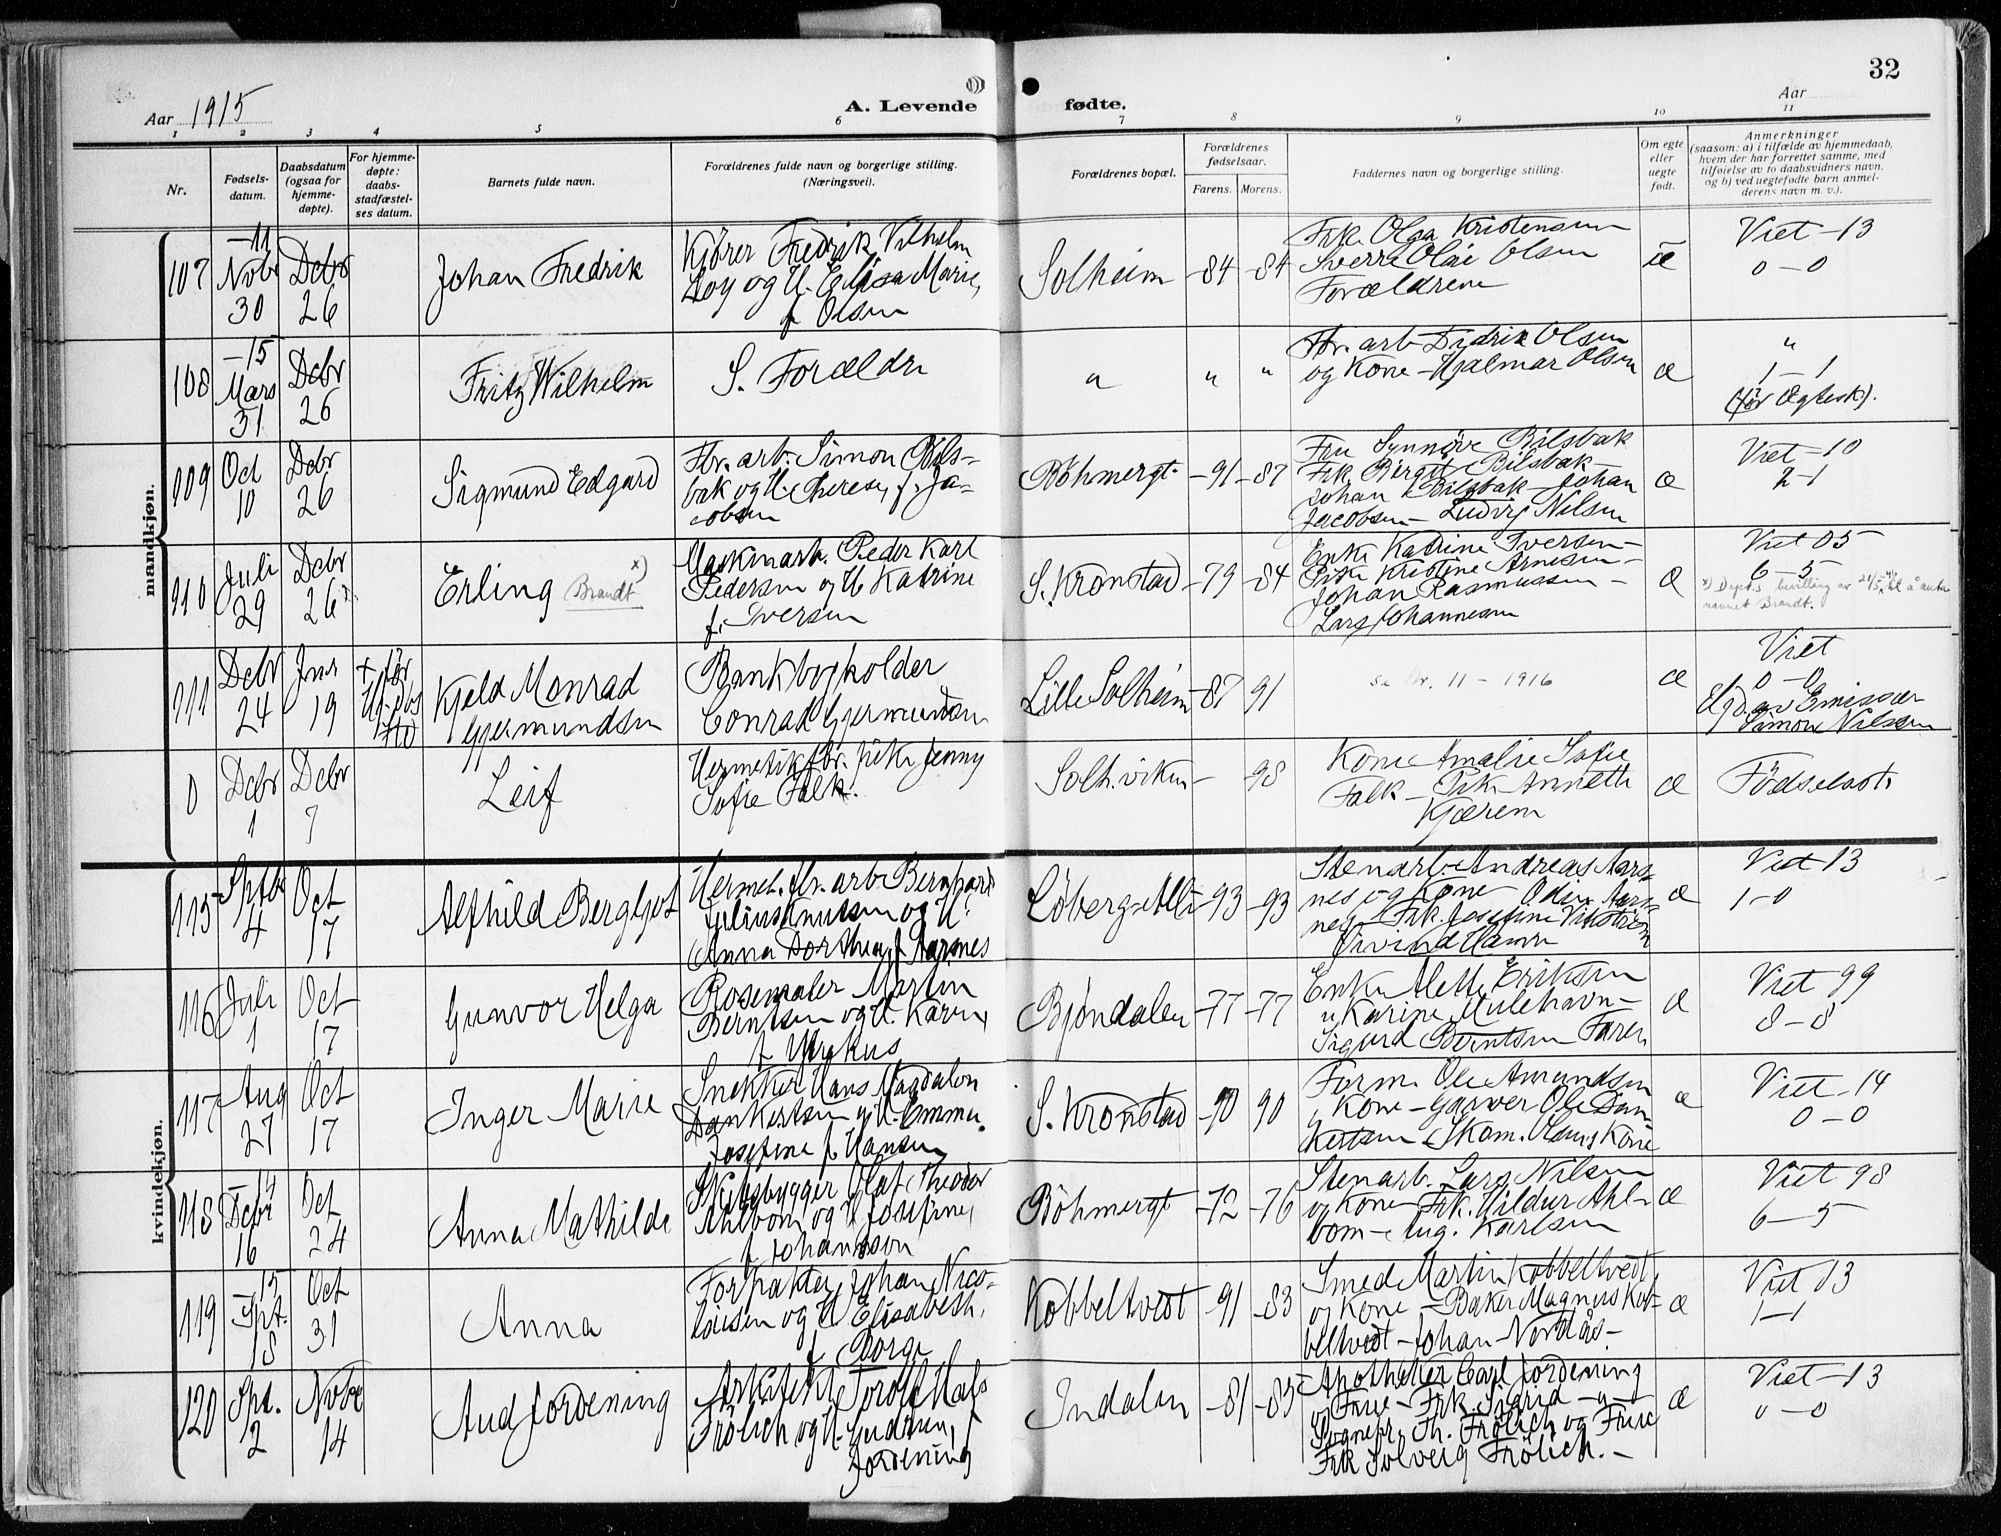 32
Aar 1915
A. Levende fødte.
Aar
1 2 3 4 5 6 7 8 9 10 11
Nr.
Fødsels-
datum.
Daabsdatum
(ogsaa for
hjemme-
døpte).
For hjemme-
døpte:
daabs-
stadfæstel-
ses datum.
Barnets fulde navn.
Forældrenes fulde navn og borgerlige stilling.
(Næringsvei).
Forældrenes bopæl.
Forældrenes
fødselsaar.
Farens. Morens.
Faddernes navn og borgerlige stilling.
Om egte
eller
uegte
født.
Anmerkninger
(saasom: a) i tilfælde av hjemmedaab,
hvem der har forrettet samme, med
tilføielse av to daabsvidners navn.
og b) ved uegtefødte barn anmel-
derens navn m. v.).
mandkjøn.
107
-11
Novbr
30
Dcbr
26
Johan Fredrik
Kjörer Fredrik Vilhelm
Loy og H. Elisa Marie,
f Olsen
Solheim
-84 -84
Frk. Olga Kristensen
Sverre Olai Olsen
Forældrene
Viet -13
0-0
108
-15
Mars
31
Dcbr
26
Fritz Wilhelm
S. Forældre
"
" "
Fbr. arb. Fredrik Olsen
og Kone - Hjalmar Olsen
æ
"
1-1
(før Ægtesk).
109
Oct
10
Dcbr
26
Sigmund Edgard
Fbr. arb. Simon Bils-
bak og H. Therese, f. Ja-
cobsen
Bøhmergt.
-91 -87
Fru Synnöve Bilsbak
Frk. Birgit Bilsbak
Johan Bilsbak - Johan
Jacobsen - Ludvig Nilsen
æ
Viet -10
2-1
110
Juli
29
Dcbr
26
Erling Brandt x)
Maskinarb. Peder Karl
Pedersen og H Katrine
f. Iversen
S. Kronstad
-79 -84
Enke Katrine Iversen -
Frk. Kristine Arnesen -
Johan Rasmussen -
Lars Johannesen
æ
Viet 05
6-5
navnet Brandt.
111
Dcbr
24
Jnr
19
+ før
Kjeld Monrad
Gjermundsen
Bankbogholder
Conrad Gjermundsen
Lille Solheim
-87 91
se nr. 11 - 1916
æ
Viet
0-0
Hjd. av Emissær
Simon Nilssen
0
Dcbr
1
Dcbr
7
Leif
Hermetikfbr. pike Jenny
Sofie Falk.
Solh.viken
- 98
Kone Amalie Sofie
Falk - Frk. Annette
Kjærem
æ
Födselsatt
kvindekjøn.
115
Sptbr
4
Oct
17
Alfhild Bergljot
Hermet. fbr. arb. Bernhard
Julius Knutsen og H.
Anna Dorthea, f Aarsnes
Løberg-Alle
-93 -93
Stenarb. Andreas Aars-
nes og Kone - Odin Aars-
nes - Frk. Josefine Vikström
æ
Viet 13
1-0
116
Juli
1
Oct
17
Gunvor Helga
Rosemaler Martin
Berntsen og H. Karin,
Bjøndalen
-77 -77
Enke Alette Eriksen
" Karine Mulehavn -
Sigurd Berntsen Faren
æ
Viet 99
8-8
117
Aug
27
Oct
17
Inger Marie
Snekker Hans Magdalon
Dankertsen og H. Emma
Josefine f Hansen
S. Kronstad
-90 90
Form. Ole Amundsen
, Kone - Garver Ole Dan-
kertsen - Skom. Olsen, Kone
æ
Viet 14
0-0
118
-14
Debr
16
Oct
24
Anna Mathilde
Skibsbygger Olaf Theodor
Ahlbom og H Josefine,
f Johansson
Böhmergt
-72 -76
Stenarb. Lars Nilsen
og Kone - Frk. Hildur Ahl-
bom - Aug. Karlsen
æ
Viet 98
6-5
119
-15
Spt.
18
Oct
31
Anna
Forpakter Johan Nico-
laisen og H Elisabeth,
f Borge
Kobbeltvedt
-91 -83
Smed Martin Kobbeltvedt
og Kone - Baker Magnus Kob-
beltvedt - Johan Nordås -
æ
Viet 13
1-1
120
Spt.
2
Novbr
14
Aud Jordening
Arkitekt Torolf Hals
Frölich og H. Gudrun, f
Jordening
Indalen
-81 -85
Apotheker Carl Jordening
og Frue - Frk. Sigrid - " -
Sognepr. Th. Frölich og Frue
Frk Solveig Frölich. -
æ
Viet -13
0-0